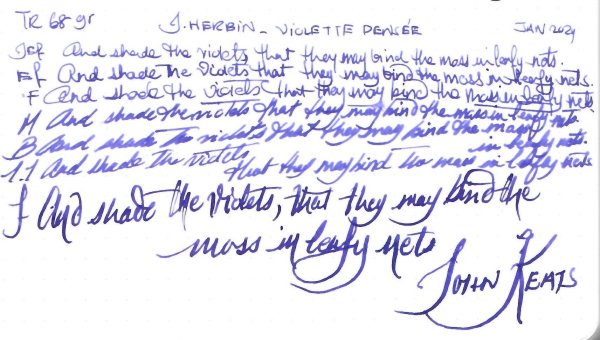 TR 68 gr J. HERBIN - VIOLETTE PENSÉE JAN 2021
Jef And shade the violets that they may bind the moss in leafy nets.
Ef And shade the violets that they may bind the moss in leafy nets.
F And shade the violets that they may bind the moss in leafy nets
M And shade the violets that they may bind the moss in leafy nets
B And shade the violets that they may bind the
in leafy nets.
1.1 And shade the violets that they may bind the moss in leafy nets
f And shade the violets, that they may bind the
moss in leafy nets
JOHN KEATS